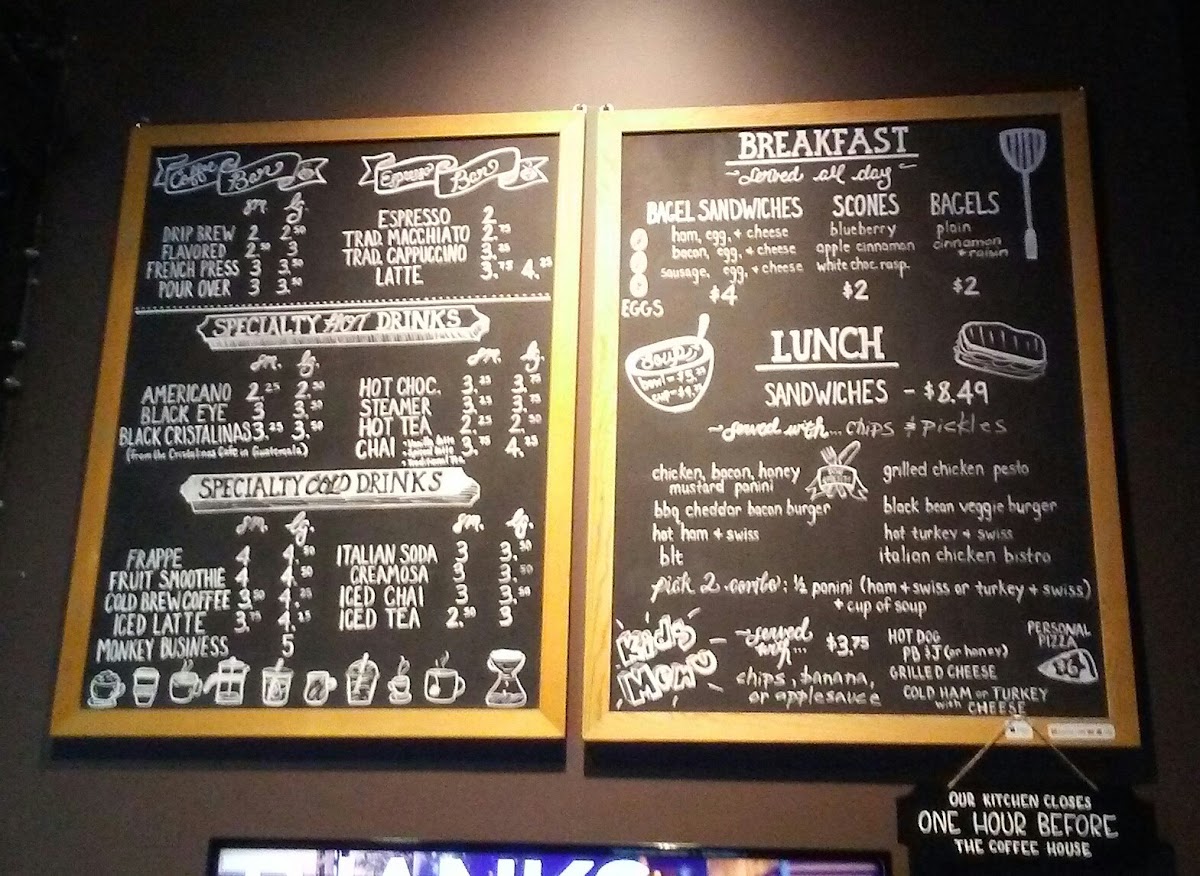 Coffee Bar
sm. lg.
DRIP BREW 2 2.50
FLAVORED 2.50 3
FRENCH PRESS 3 3.50
POUR OVER 3 3.50
Espresso Bar
ESPRESSO 2
TRAD. MACCHIATO 2.75
TRAD. CAPPUCCINO 3.25
LATTE 3.75 4.25
SPECIALTY HOT DRINKS
sm. lg.
AMERICANO 2.25 2.50
BLACK EYE 3 3.50
BLACK CRISTALINAS 3.25 3.50
(from the Cristalinas Cafe in Guatemala)
sm. lg.
HOT CHOC. 3.25 3.75
STEAMER 3.25 3.75
HOT TEA 2.25 2.50
CHAI 3.75 4.25
SPECIALTY COLD DRINKS
sm. lg.
FRAPPE 4 4.50
FRUIT SMOOTHIE 4 4.50
COLD BREW COFFEE 3.50 4.25
ICED LATTE 3.75 4.25
MONKEY BUSINESS 5
sm. lg.
ITALIAN SODA 3 3.50
CREAMOSA 3 3.50
ICED CHAI 3 3.50
ICED TEA 2.50 3
BREAKFAST
~served all day
BAGEL SANDWICHES
ham, egg, + cheese
bacon, egg, + cheese
sausage, egg, + cheese
$4
EGGS
SCONES
blueberry
apple cinnamon
white choc. rasp.
$2
BAGELS
plain
cinnamon
+ raisin
$2
Soup
bowl = $5.25
cup =
LUNCH
SANDWICHES - $8.49
~served with... chips & pickles
chicken, bacon, honey
mustard panini
bbq cheddar bacon burger
hot ham + swiss
blt
grilled chicken pesto
black bean veggie burger
hot turkey + swiss
italian chicken bistro
pick 2 combo: ½ panini (ham + swiss or turkey + swiss)
+ cup of soup
Kids
Menu
~served
with... $3.75
chips, banana,
or applesauce
HOT DOG
PB & J (or honey)
GRILLED CHEESE
COLD HAM or TURKEY
with CHEESE
PERSONAL
PIZZA
$6
OUR KITCHEN CLOSES
ONE HOUR BEFORE
THE COFFEE HOUSE
THANKS